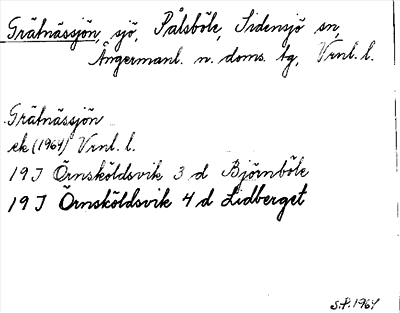 Grätnässjön, sjö, Pålsböle, Sidensjö sn,
Ångermanl. n. doms. tg, Vrnl. l.
Grätnässjön
ek (1964) Vrnl. l.
19 J Örnsköldsvik 3 d Björnböle
19 J Örnsköldsvik 4 d Lidberget
S.P. 1964